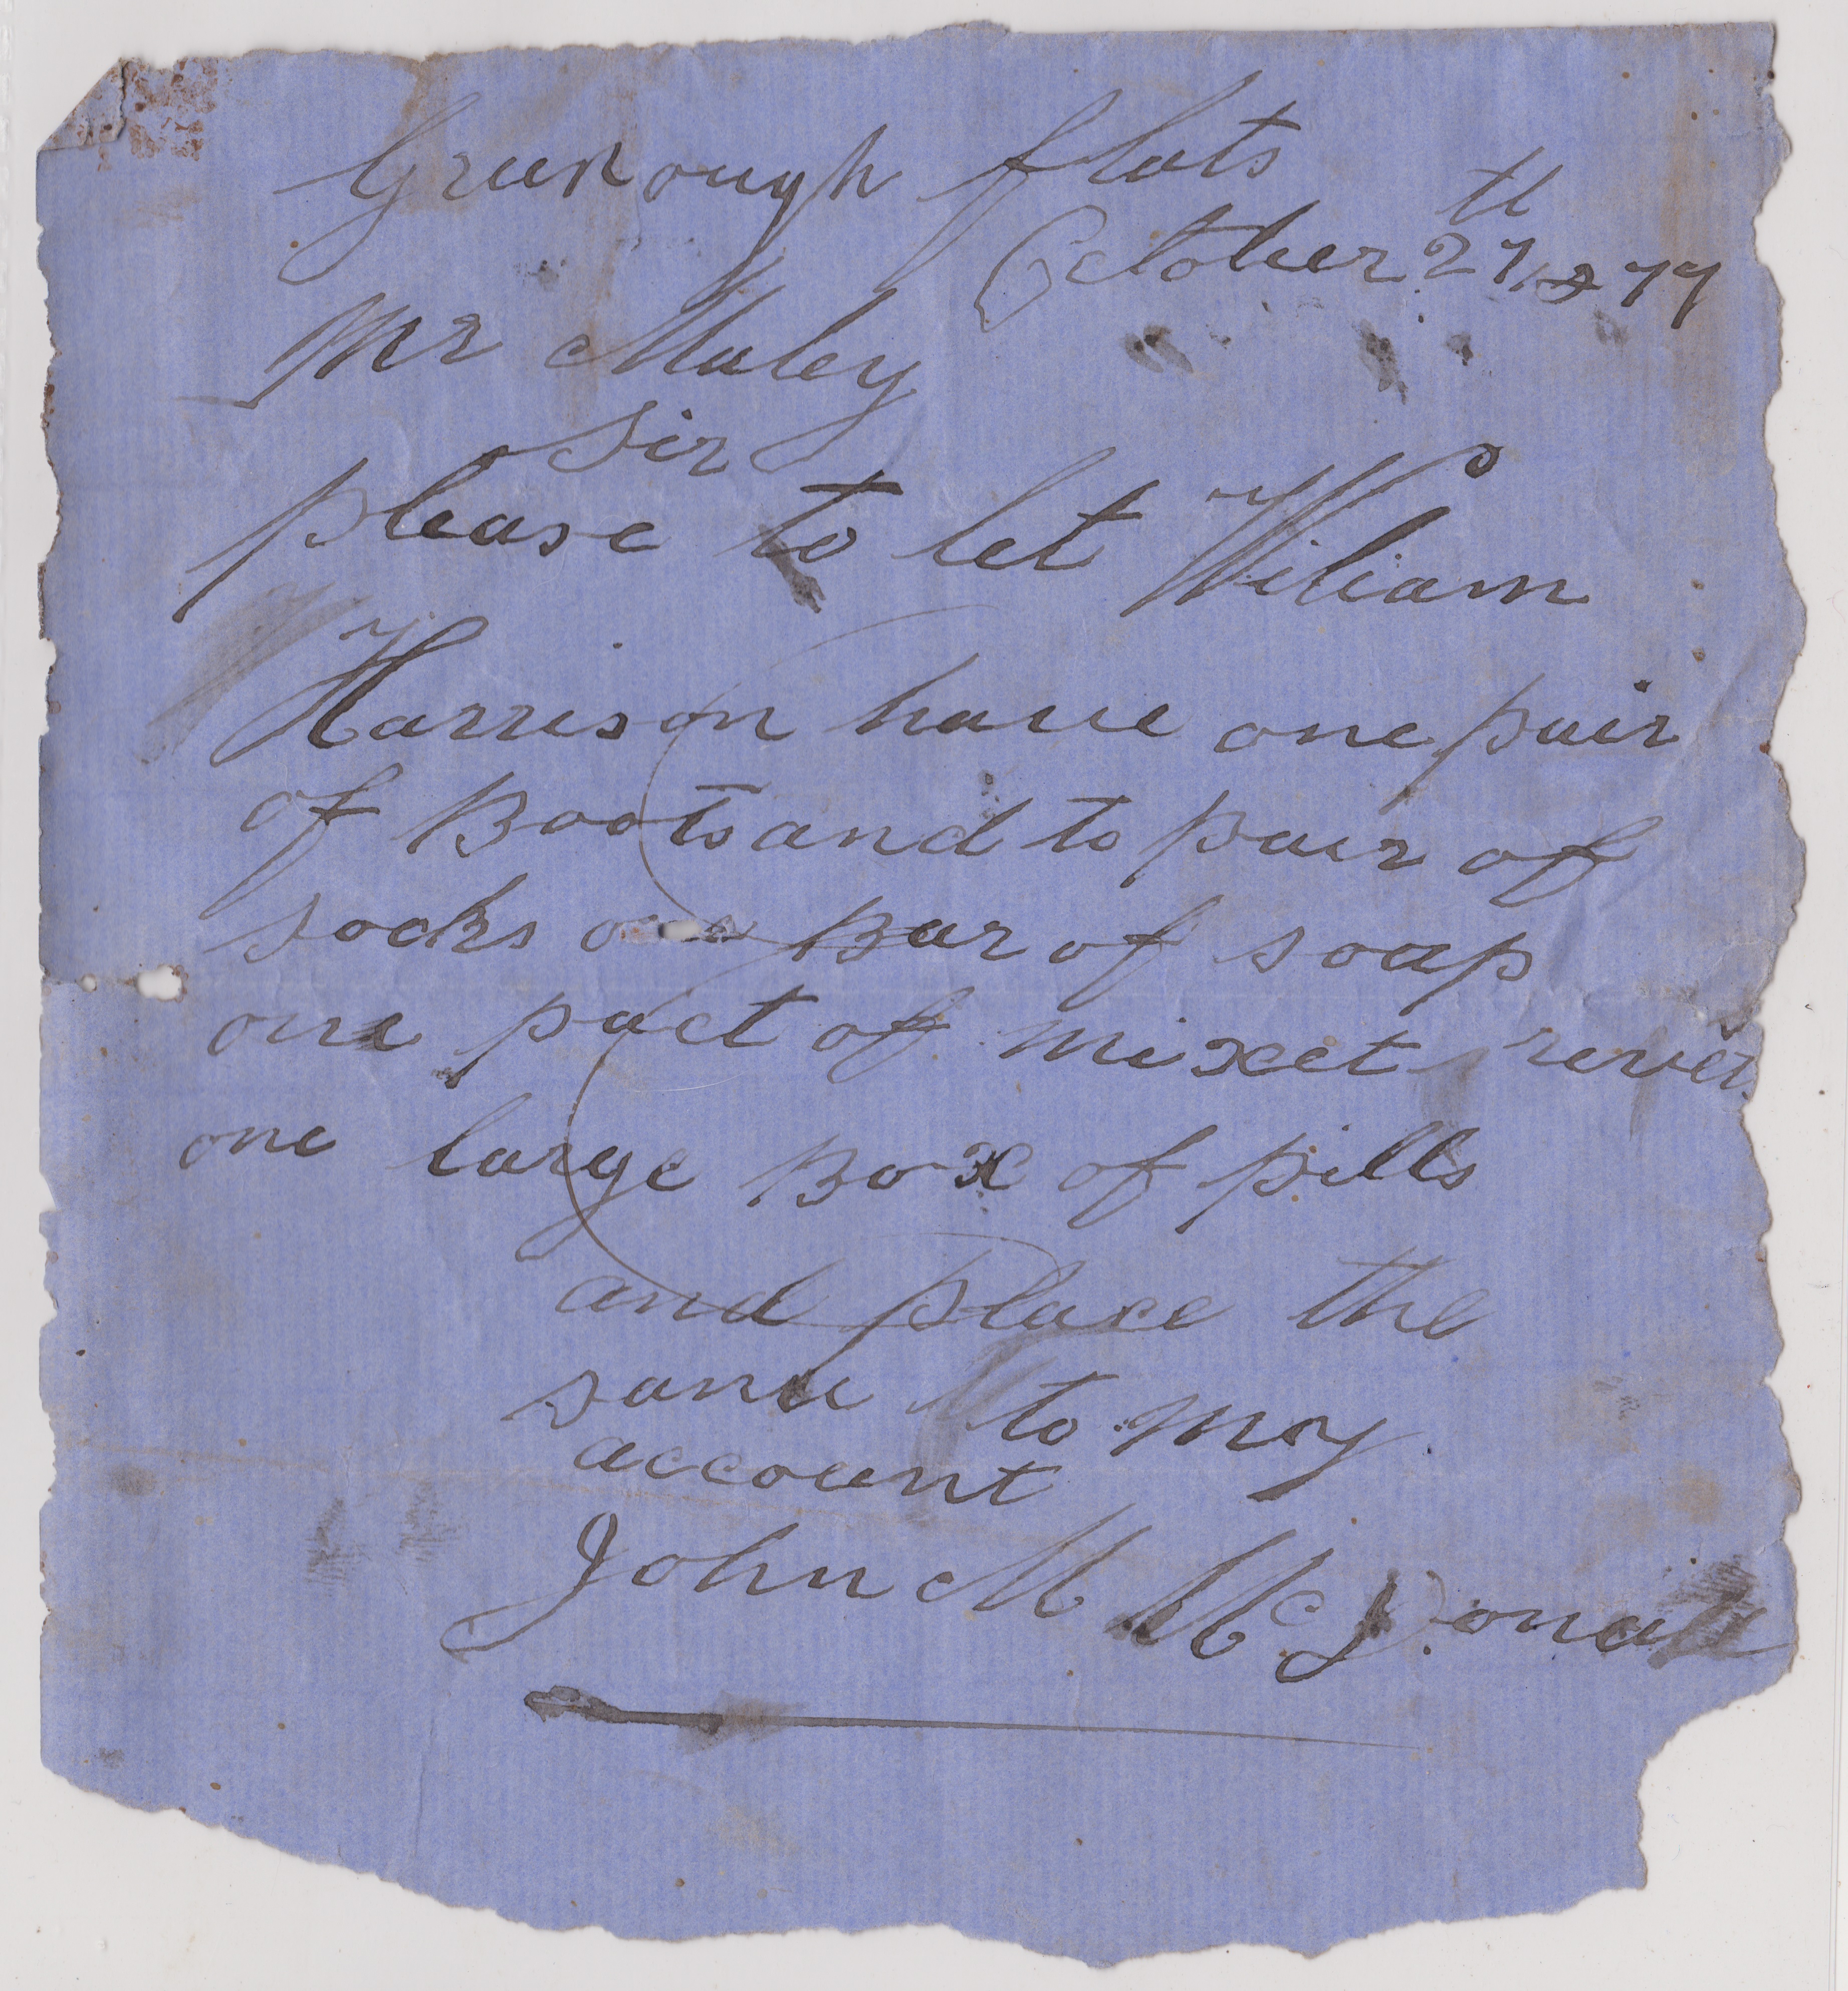 Greenough flats
October 27th 1877
Mr Maley
Sir
please to let Wiliam
Harrison have one pair
of Boots and to pair of
socks one Bar of soap
one pact of mixet
one large Box of pills
and place the
same to my
account
John M McDonald